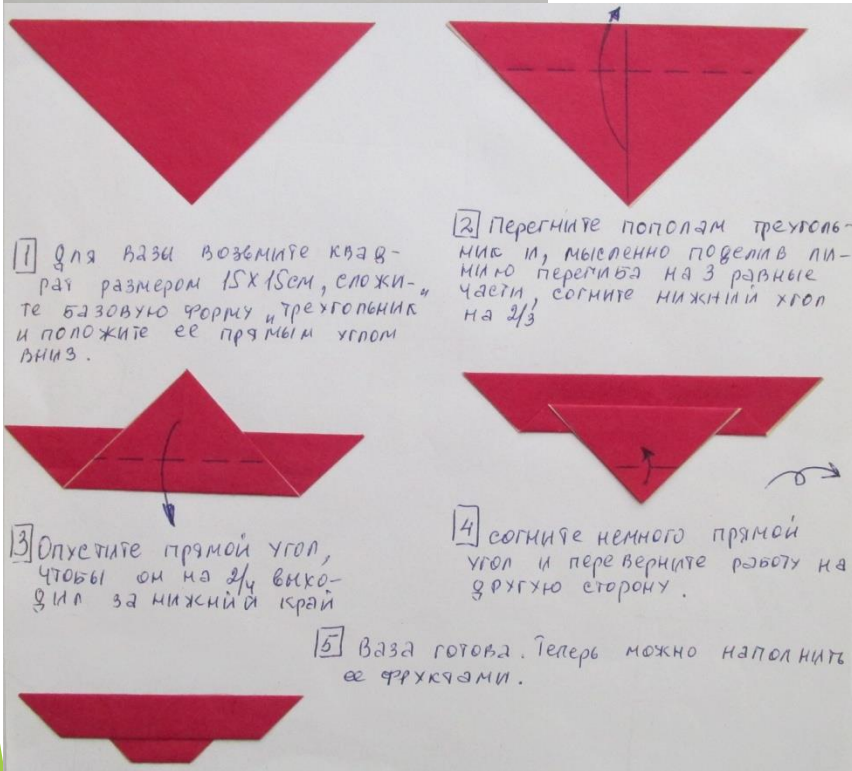 1 Для вазы возьмите квад-
рат размером 15х15см, сложи-
те базовую форму „треугольник"
и положите ее прямым углом
вниз.
2 Перегните пополам треуголь-
ник и, мысленно поделив ли-
нию перегиба на 3 равные
части, согните нижний угол
на 2/3
3 Опустите прямой угол,
чтобы он на 2/4 выхо-
дил за нижний край
4 согните немного прямой
угол и переверните работу на
другую сторону.
5 Ваза готова. Теперь можно наполнить
ее фруктами.